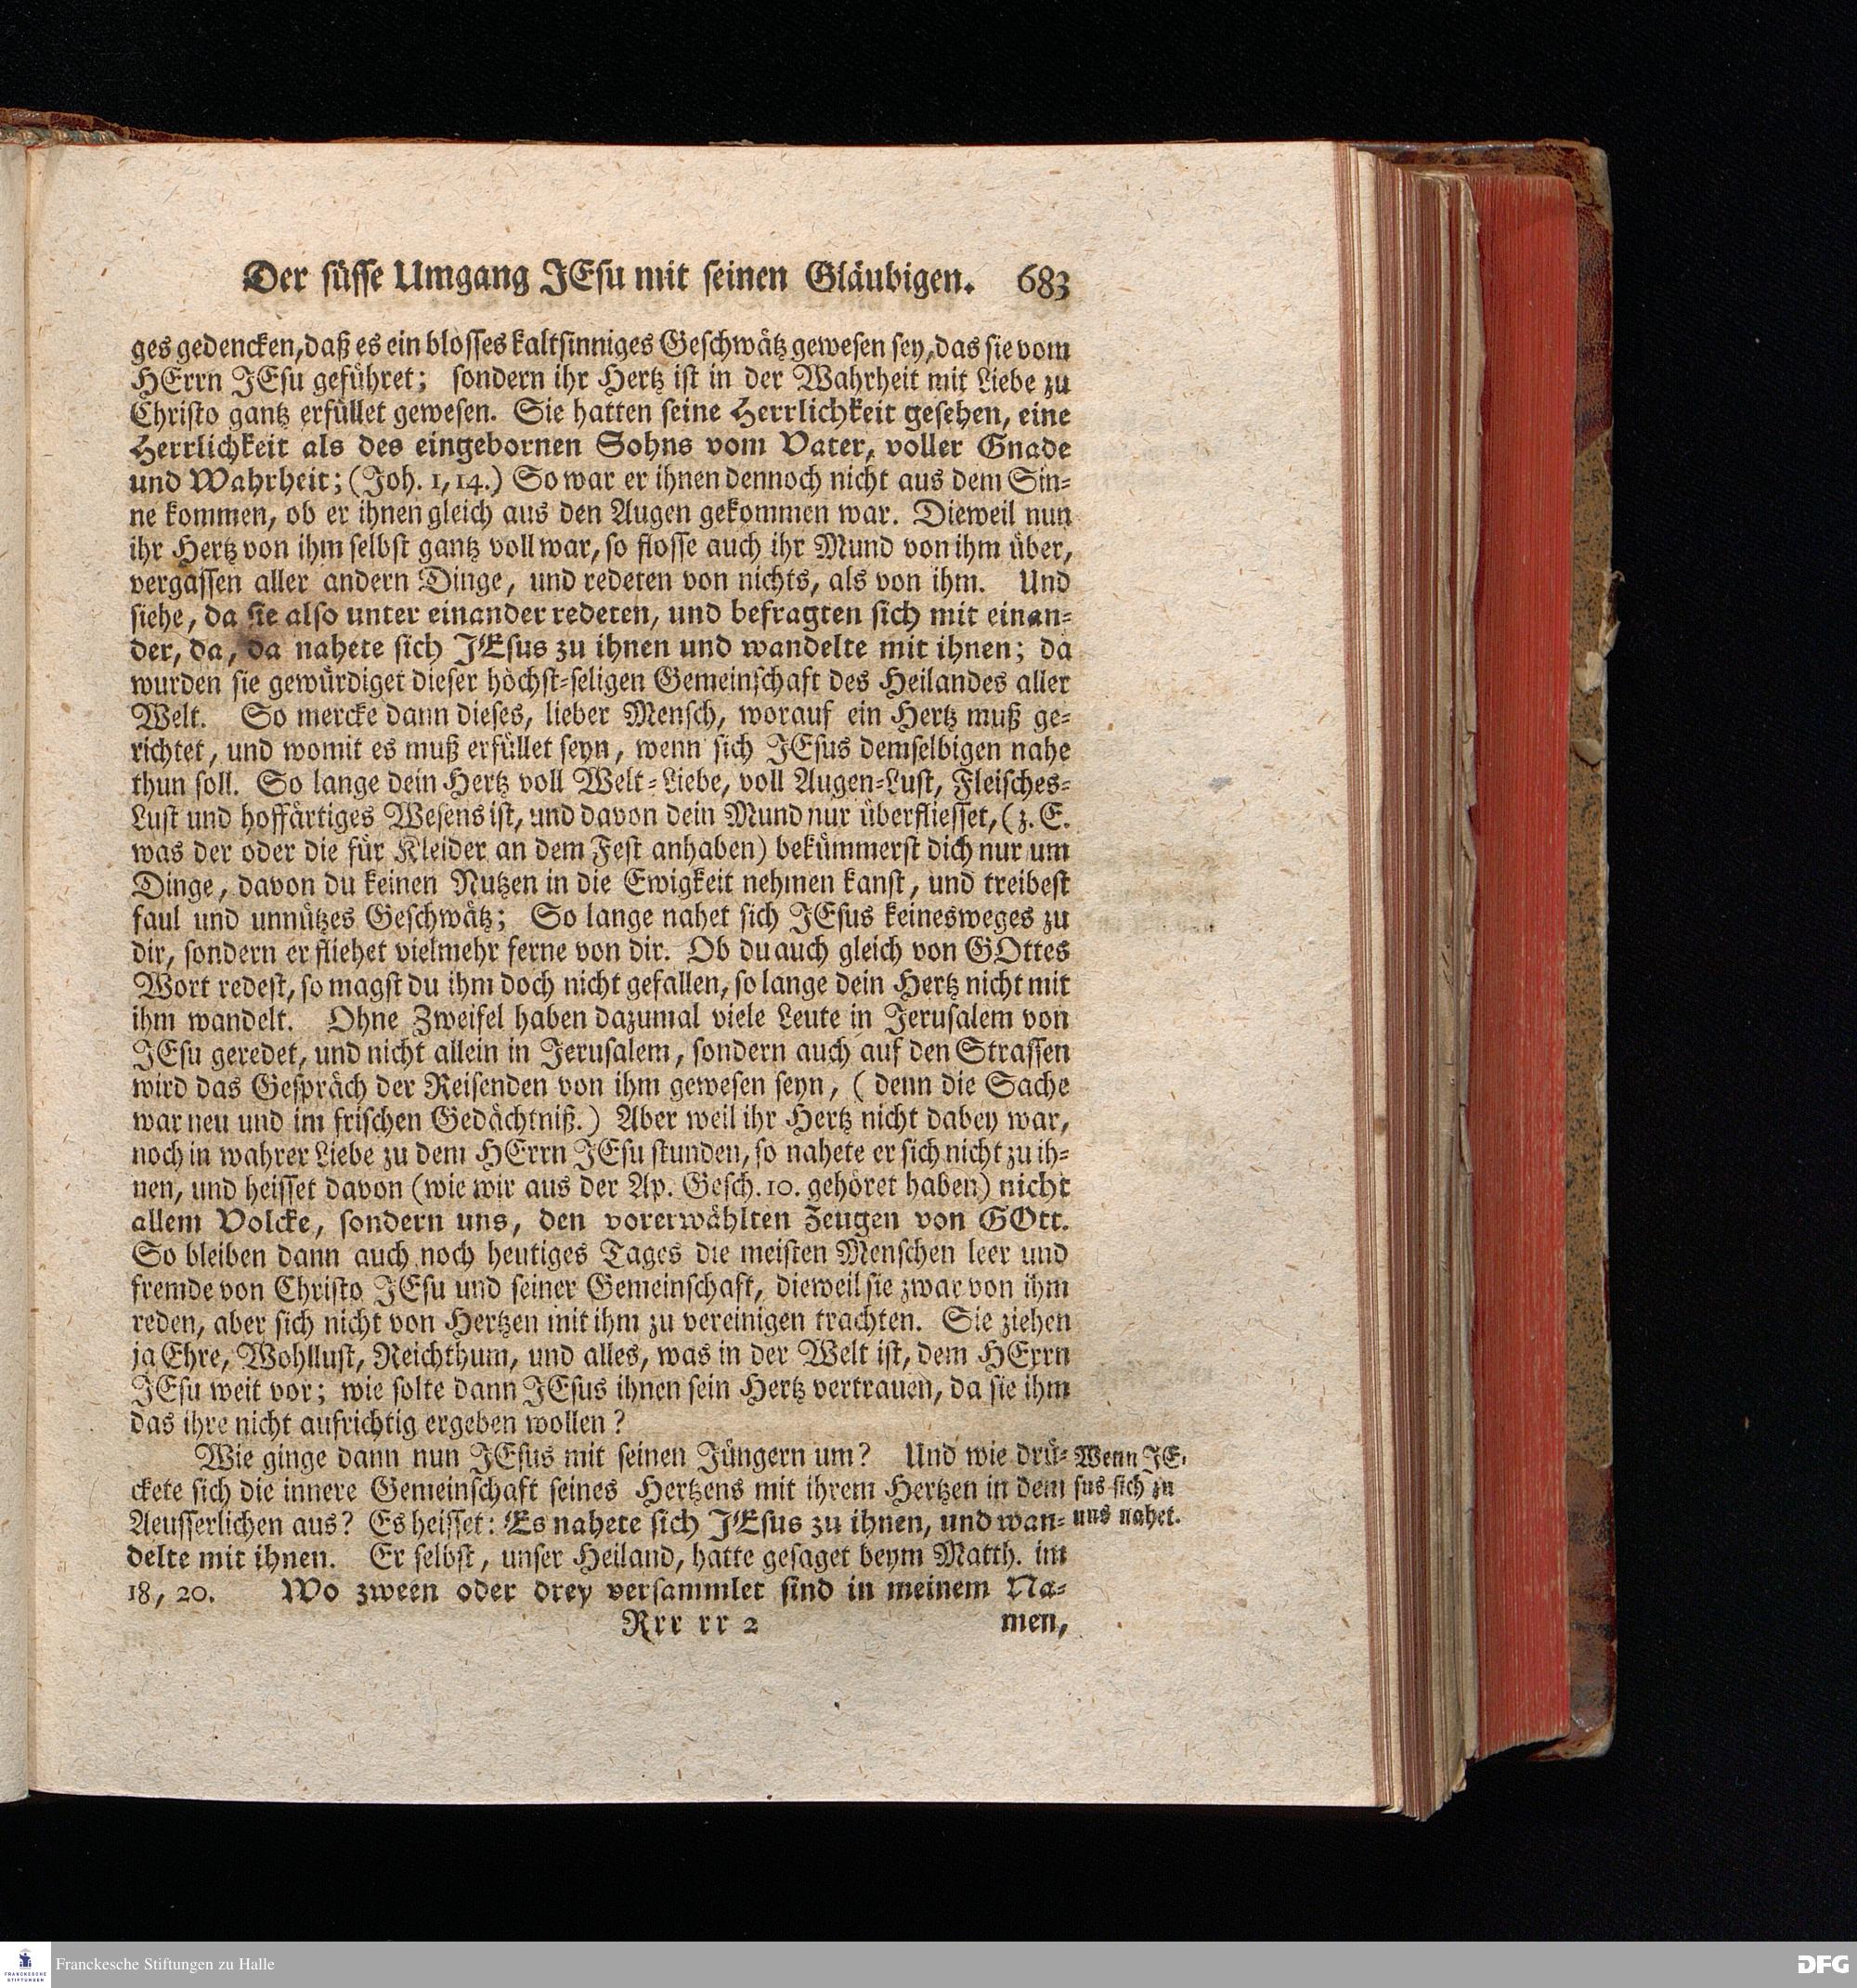 Der süsse Umgang JEsu mit seinen Gläubigen. 683
ges gedencken, daß es ein blosses kaltsinniges Geschwätz gewesen sey, das sie vom
HErrn JEsu geführet; sondern ihr Hertz ist in der Wahrheit mit Liebe zu
Christo gantz erfüllet gewesen. Sie hatten seine Herrlichkeit gesehen, eine
Herrlichkeit als des eingebornen Sohns vom Vater, voller Gnade
und Wahrheit; (Joh. 1, 14.) So war er ihnen dennoch nicht aus dem Sin-
ne kommen, ob er ihnen gleich aus den Augen gekommen war. Dieweil nun
ihr Hertz von ihm selbst gantz voll war, so flosse auch ihr Mund von ihm über,
vergassen aller andern Dinge, und redeten von nichts, als von ihm. Und
siehe, da sie also unter einander redeten, und befragten sich mit einan-
der, da, da nahete sich JEsus zu ihnen und wandelte mit ihnen; da
wurden sie gewürdiget dieser höchst-seligen Gemeinschaft des Heilandes aller
Welt. So mercke dann dieses, lieber Mensch, worauf ein Hertz muß ge-
richtet, und womit es muß erfüllet seyn, wenn sich JEsus demselbigen nahe
thun soll. So lange dein Hertz voll Welt-Liebe, voll Augen-Lust, Fleisches-
Lust und hoffärtiges Wesens ist, und davon dein Mund nur überfliesset, (z. E.
was der oder die für Kleider an dem Fest anhaben) bekümmerst dich nur um
Dinge, davon du keinen Nutzen in die Ewigkeit nehmen kanst, und treibest
faul und unnützes Geschwätz; So lange nahet sich JEsus keinesweges zu
dir, sondern er fliehet vielmehr ferne von dir. Ob du auch gleich von GOttes
Wort redest, so magst du ihm doch nicht gefallen, so lange dein Hertz nicht mit
ihm wandelt. Ohne Zweifel haben dazumal viele Leute in Jerusalem von
JEsu geredet, und nicht allein in Jerusalem, sondern auch auf den Strassen
wird das Gespräch der Reisenden von ihm gewesen seyn, ( denn die Sache
war neu und im frischen Gedächtniß.) Aber weil ihr Hertz nicht dabey war,
noch in wahrer Liebe zu dem HErrn JEsu stunden, so nahete er sich nicht zu ih-
nen, und heisset davon (wie wir aus der Ap. Gesch. 10. gehöret haben) nicht
allem Volcke, sondern uns, den vorerwählten Zeugen von GOtt.
So bleiben dann auch noch heutiges Tages die meisten Menschen leer und
fremde von Christo JEsu und seiner Gemeinschaft, dieweil sie zwar von ihm
reden, aber sich nicht von Hertzen mit ihm zu vereinigen trachten. Sie ziehen
ja Ehre, Wohllust, Reichthum, und alles, was in der Welt ist, dem HErrn
JEsu weit vor; wie solte dann JEsus ihnen sein Hertz vertrauen, da sie ihm
das ihre nicht aufrichtig ergeben wollen?
Wie ginge dann nun JEsus mit seinen Jüngern um? Und wie drü-
ckete sich die innere Gemeinschaft seines Hertzens mit ihrem Hertzen in dem
Aeusserlichen aus? Es heisset: Es nahete sich JEsus zu ihnen, und wan-
delte mit ihnen. Er selbst, unser Heiland, hatte gesaget beym Matth. im
18, 20. Wo zween oder drey versammlet sind in meinem Na-
Wenn JE-
sus sich zu
uns nahet.
Rrr rr 2 men,
FRANCKESCHE
STIFTUNGEN
Franckesche Stiftungen zu Halle
DFG